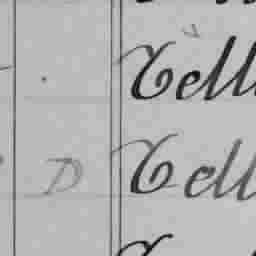 Tell
D Tell